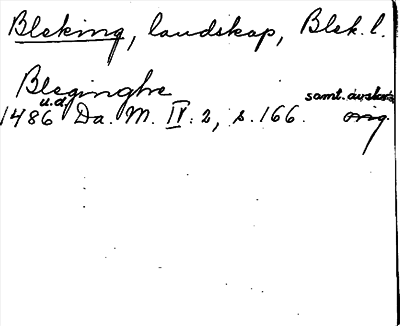 Bleking, landskap, Blek. l.
Bleginghe
1486 u.d. Da. M. IV: 2, s. 166. samt. avskr.
orig.